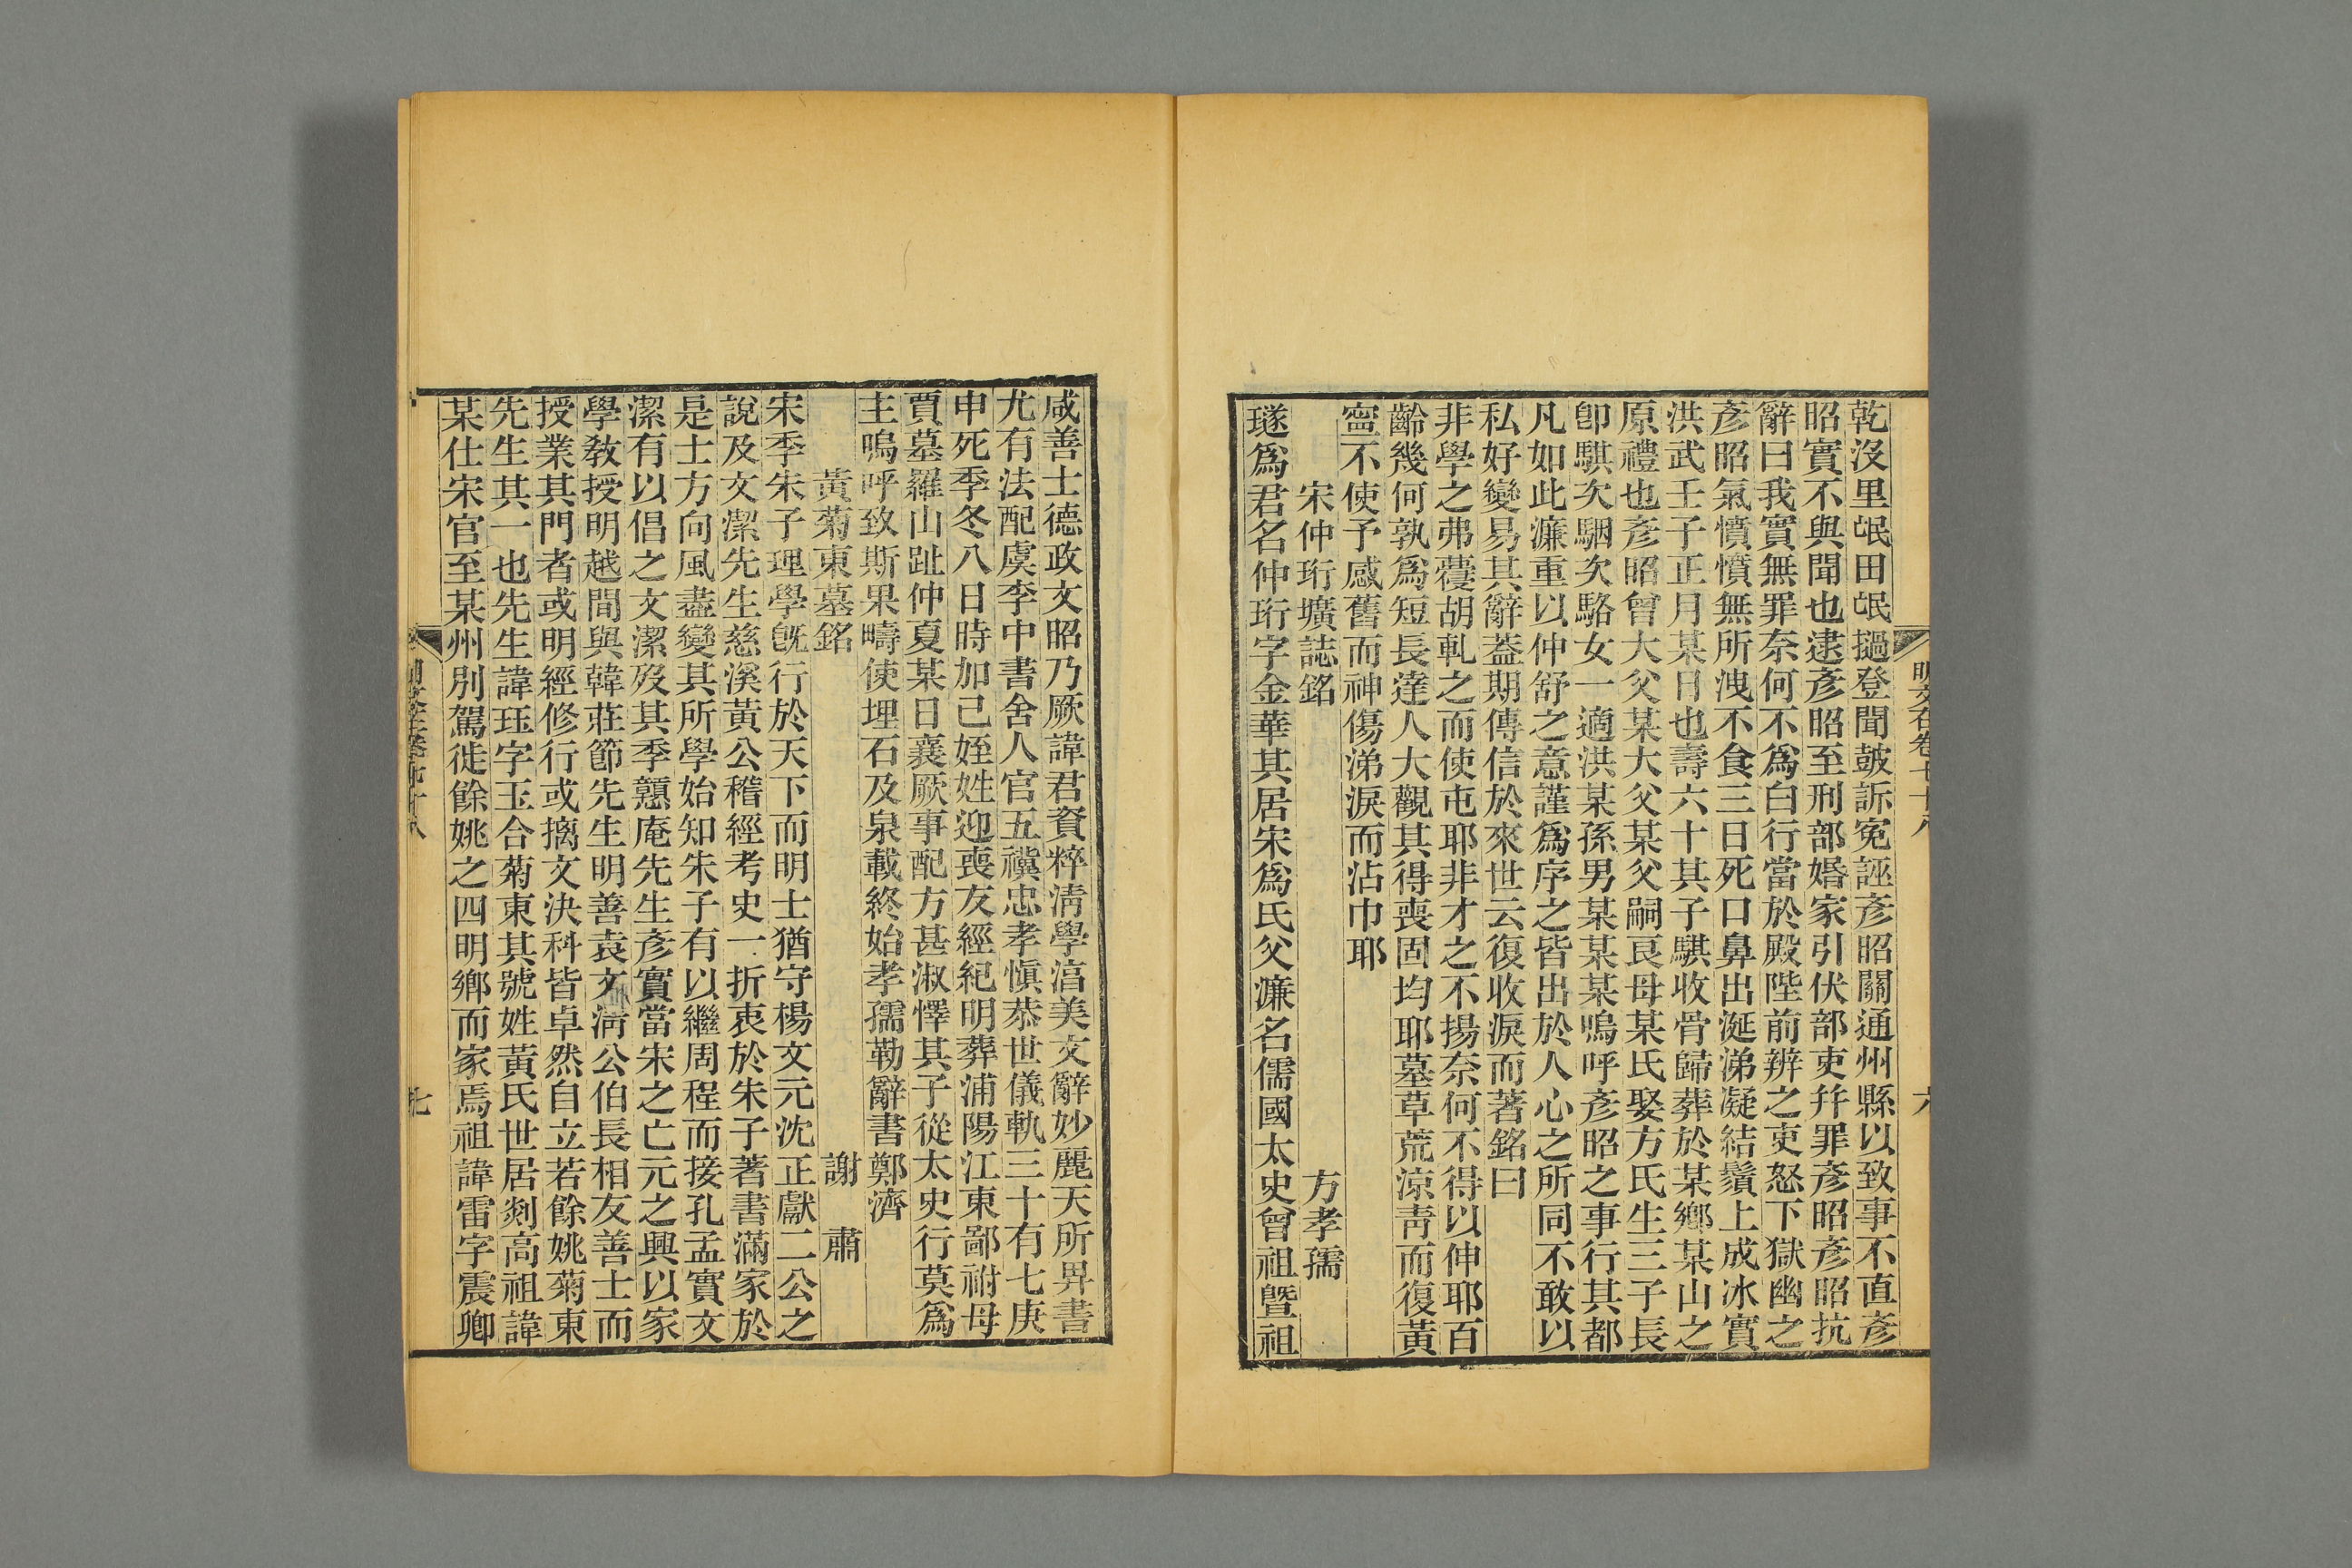 乾沒里氓田氓撾登聞皷訴寃誣彥昭關通州縣以致事不直彥
昭實不與聞也逮彥昭至刑部婚家引伏部吏幷罪彥昭彥昭抗
辭曰我實無罪奈何不爲白行當於殿陛前辨之吏怒下獄幽之
彥昭氣憤憤無所洩不食三日死口鼻出涎涕凝結鬚上成冰實
洪武壬子正月某日也壽六十其子騏收骨歸葬於某鄉某山之
原禮也彥昭曾大父某大父某父嗣良母某氏娶方氏生三子長
卽騏次駰次駱女一適洪某孫男某某某嗚呼彥昭之事行其都
凡如此濂重以仲舒之意謹爲序之皆出於人心之所同不敢以
私好變易其辭葢期傳信於來世云復收淚而著銘曰
非學之弗藑胡軋之而使屯耶非才之不揚奈何不得以伸耶百
齡幾何孰爲短長達人大觀其得喪固均耶墓草荒涼靑而復黃
寍不使予感舊而神傷涕淚而沾巾耶
宋仲珩壙誌銘 方孝孺
璲爲君名仲珩字金華其居宋爲氏父濂名儒國太史曾祖曁祖
咸善士德政文昭乃厥諱君資粹淸學湻美文辭妙麗天所畀書
尤有法配虞李中書舍人官五禩忠孝愼恭世儀軌三十有七庚
申死季冬八日時加己姪姓迎喪友經紀明葬浦陽江東鄙祔母
賈墓羅山趾仲夏某日襄厥事配方甚淑懌其子從太史行莫爲
主嗚呼致斯果疇使埋石及泉載終始孝孺勒辭書鄭濟
黃菊東墓銘 謝 肅
宋季朱子理學旣行於天下而明士猶守楊文元沈正獻二公之
說及文潔先生慈溪黃公稽經考史一折衷於朱子著書滿家於
是士方向風盡變其所學始知朱子有以繼周程而接孔孟實文
潔有以倡之文潔歿其季戇庵先生彥實當宋之亡元之興以家
學敎授明越間與韓莊節先生明善袁文淸公伯長相友善士而
授業其門者或明經修行或摛文決科皆卓然自立若餘姚菊東
先生其一也先生諱珏字玉合菊東其號姓黃氏世居剡高祖諱
某仕宋官至某州別駕徙餘姚之四明鄉而家焉祖諱雷字震卿